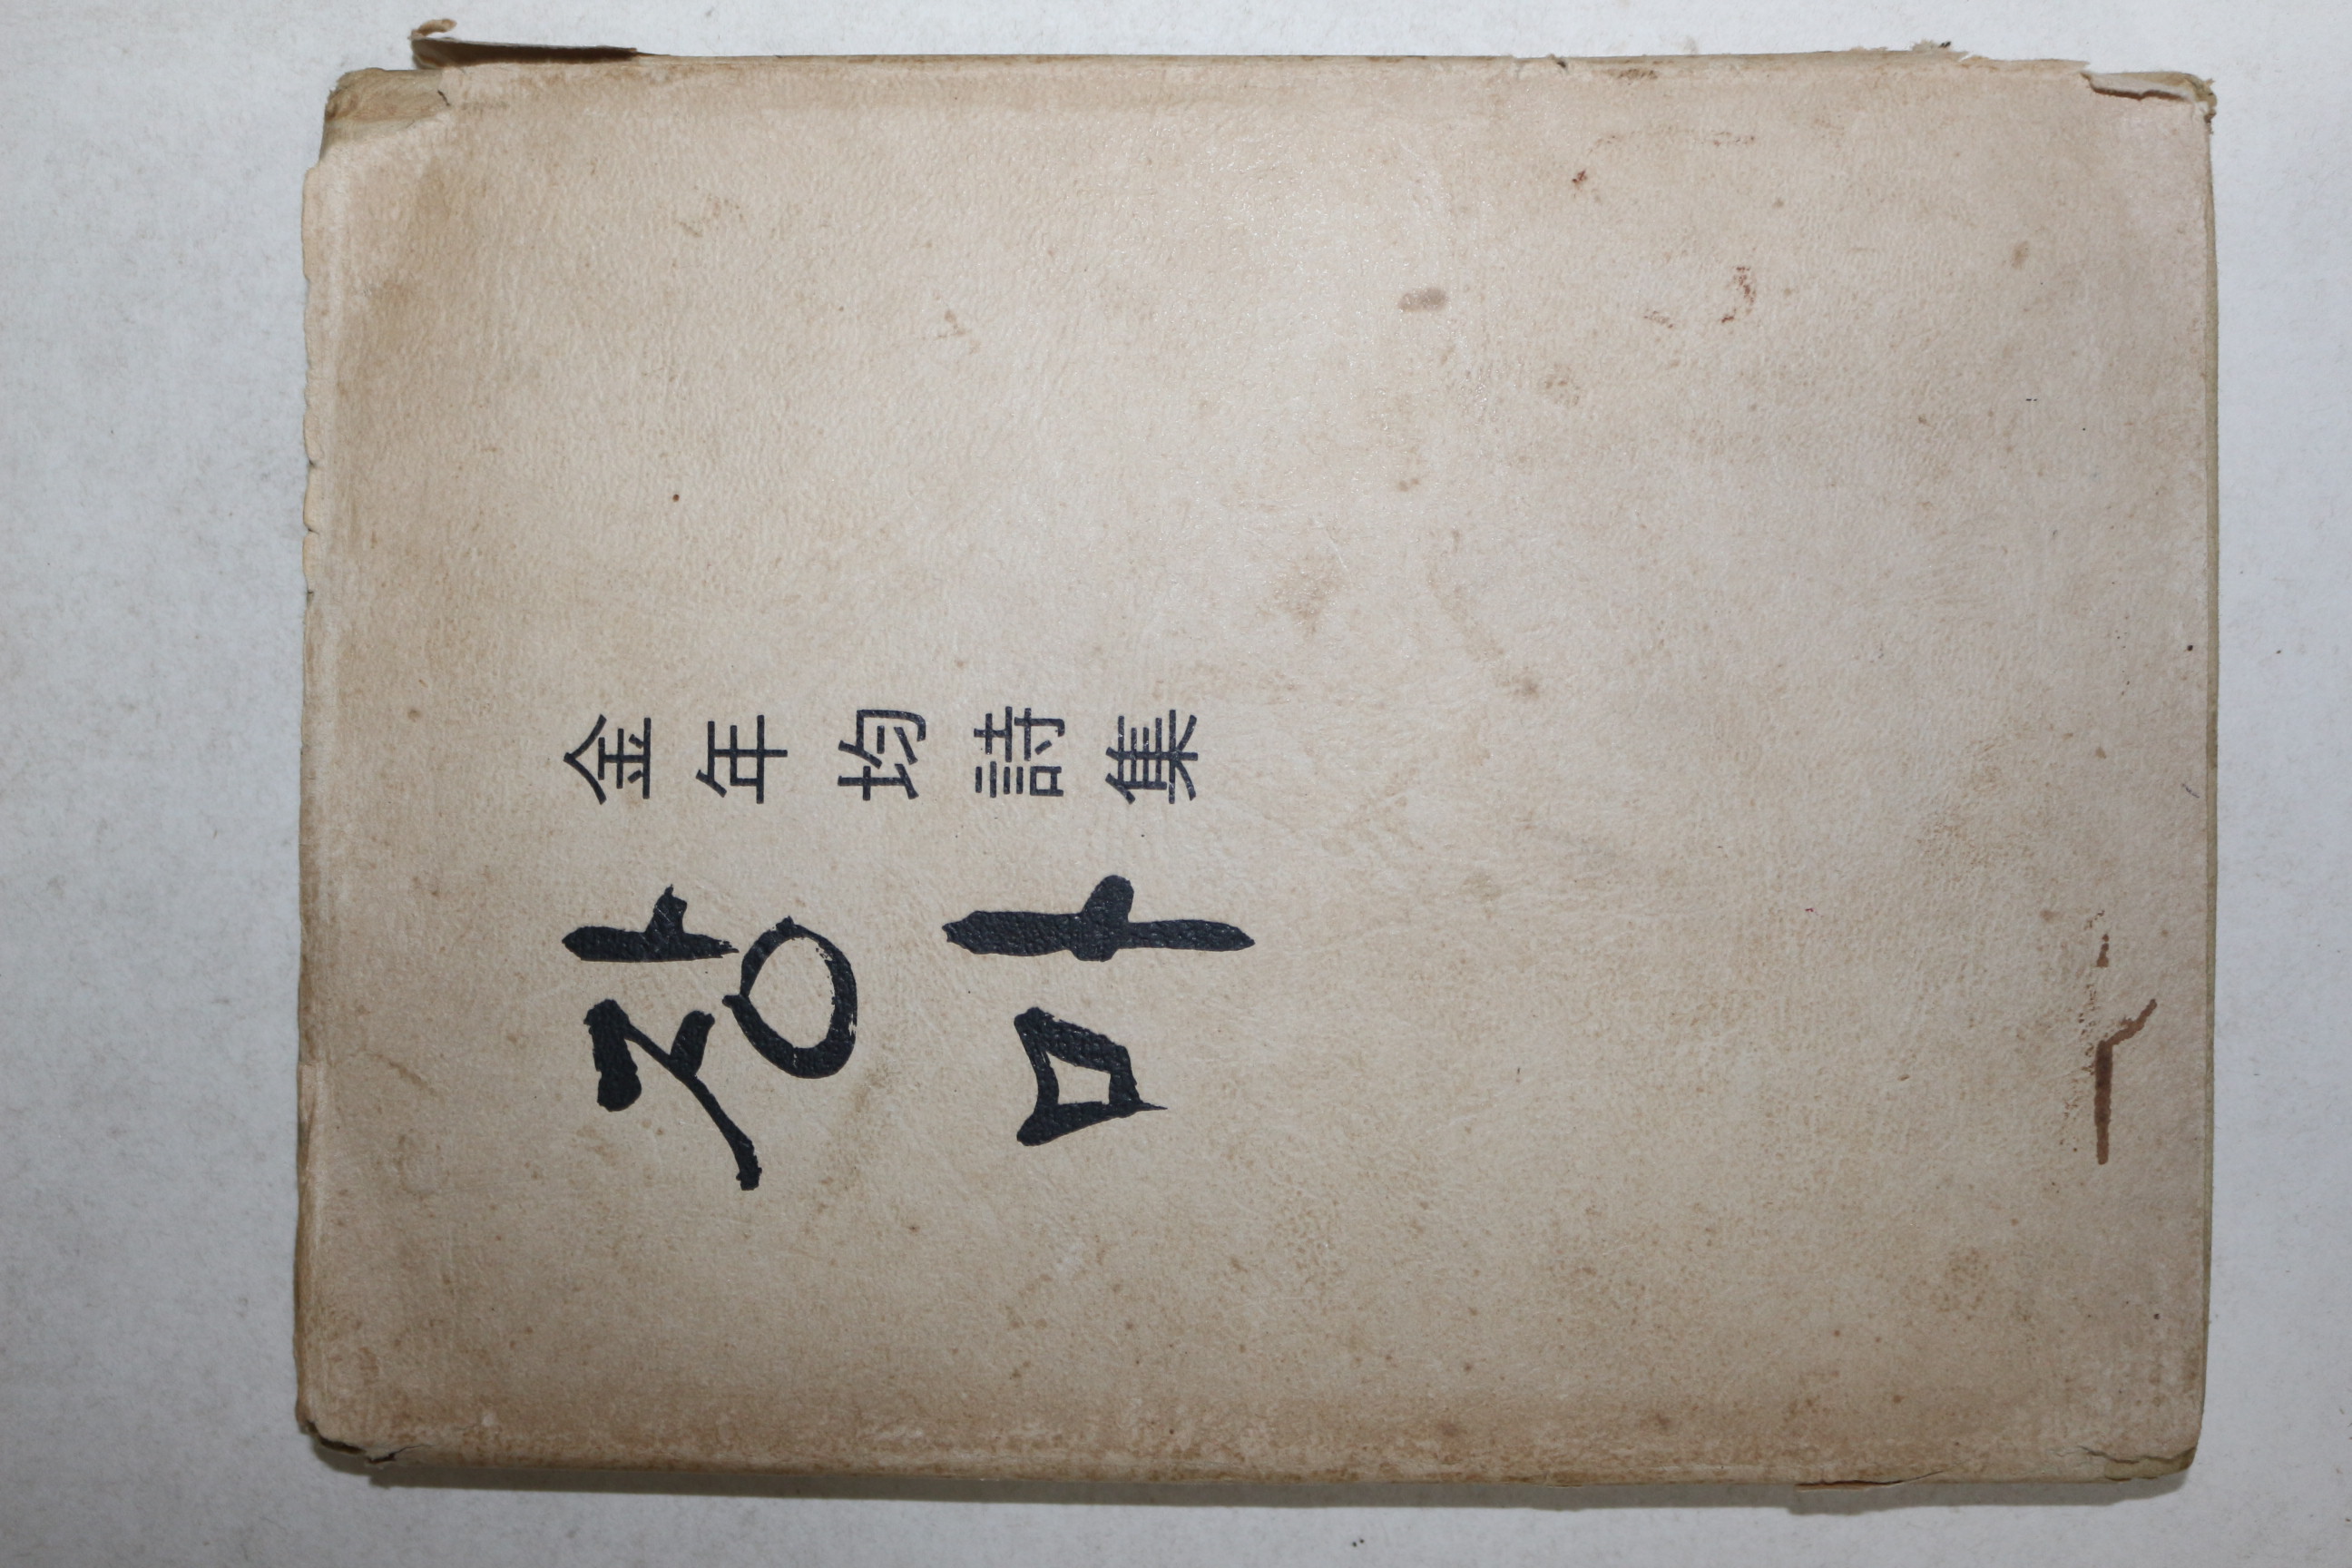 金年均詩集
장마